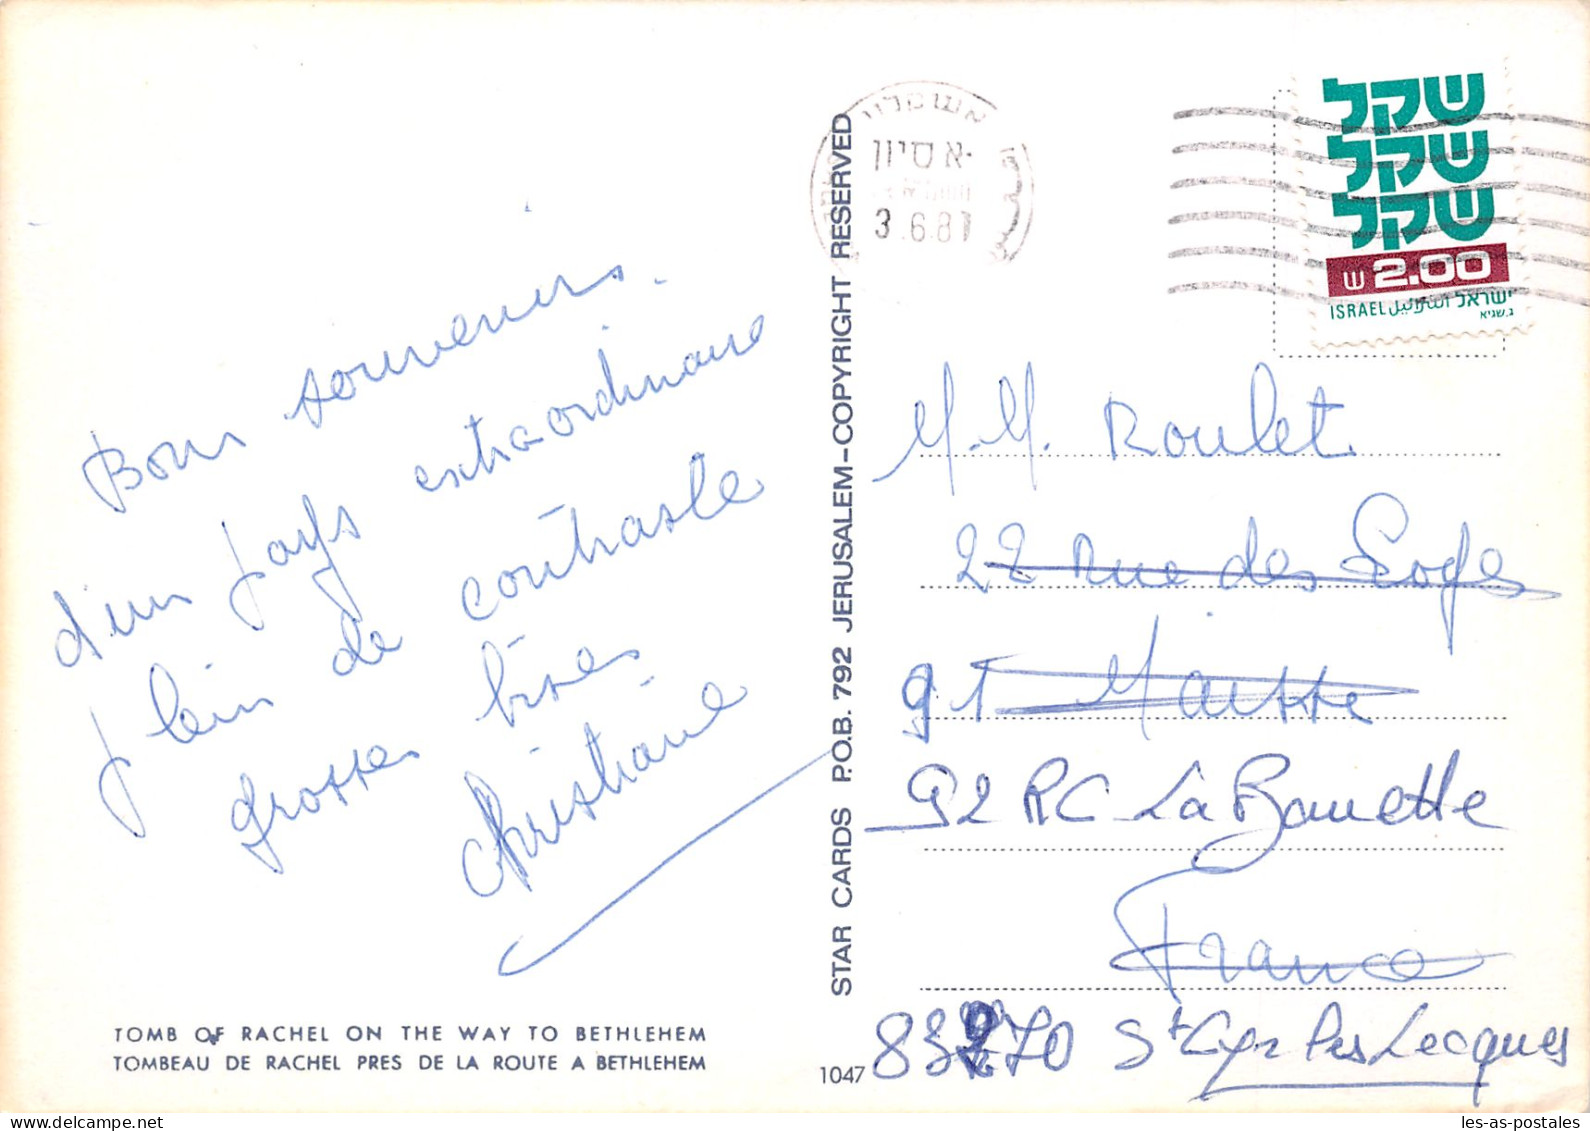 Bons souvenirs.
d'un pays extraordinaire
plein de contraste
grosses bises
Christiane
TOMB OF RACHEL ON THE WAY TO BETHLEHEM
TOMBEAU DE RACHEL PRES DE LA ROUTE A BETHLEHEM
1047
STAR CARDS P.O.B. 792 JERUSALEM-COPYRIGHT RESERVED
אשקלון
א סיון
3.6.81
שקל
שקל
שקל
ש 2.00
ISRAEL اسرائيل ישראל
M.M. Roulet
22 Rue des Loges
91 Maisse
92 RC La Banette
France
83270 St Cyr les Lecques
les-as-postales